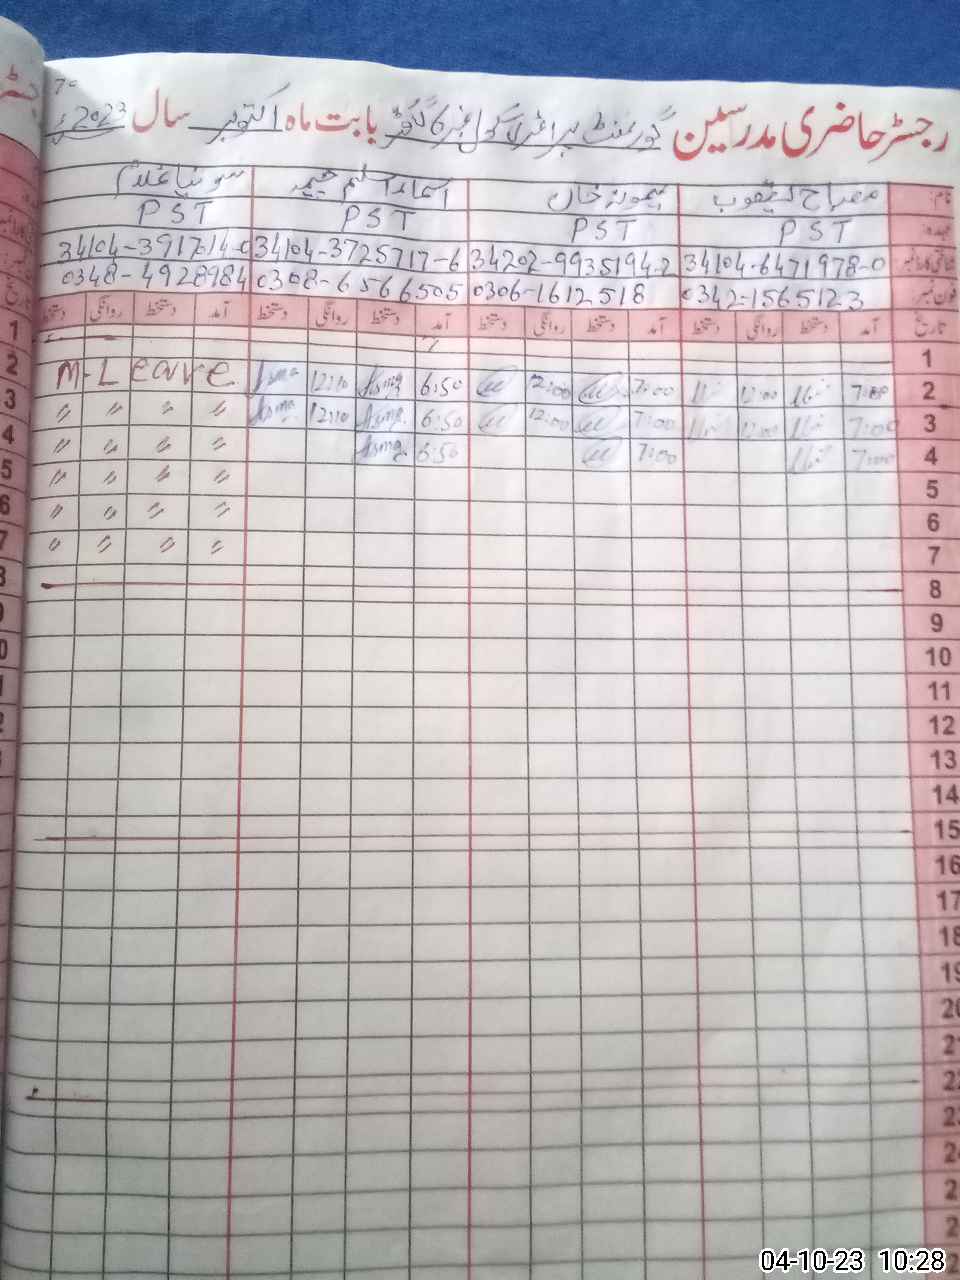 70
رجسٹر حاضری مدرسین گورنمنٹ پرائمری سکول نمبر 6 بابت ماہ اکتوبر سال 2023ء
نام: معراج یعقوب میمونہ خان اسماء سلیم چیمہ سونیا غلام
عہدہ: PST PST PST PST
34104-6471978-0 34202-9935194-2 34104-3725717-6
فون نمبر: 0342-1565123 0306-1612518 0308-6566505 0348-4928984
تاریخ آمد دستخط روانگی دستخط آمد دستخط روانگی دستخط آمد دستخط روانگی دستخط آمد دستخط روانگی دستخط
1
2 7:00 12:00 7:00 12:00 6:50 Asma 12:10 Asma M-Leave
3 7:00 12:00 7:00 12:00 6:50 Asma 12:10 Asma 〃 〃 〃 〃
4 7:00 7:00 6:50 Asma 〃 〃 〃 〃
5 〃 〃 〃 〃
6 〃 〃 〃 〃
7 〃 〃 〃 〃
8
9
10
11
12
13
14
15
16
17
18
19
20
21
22
23
24
04-10-23 10:28